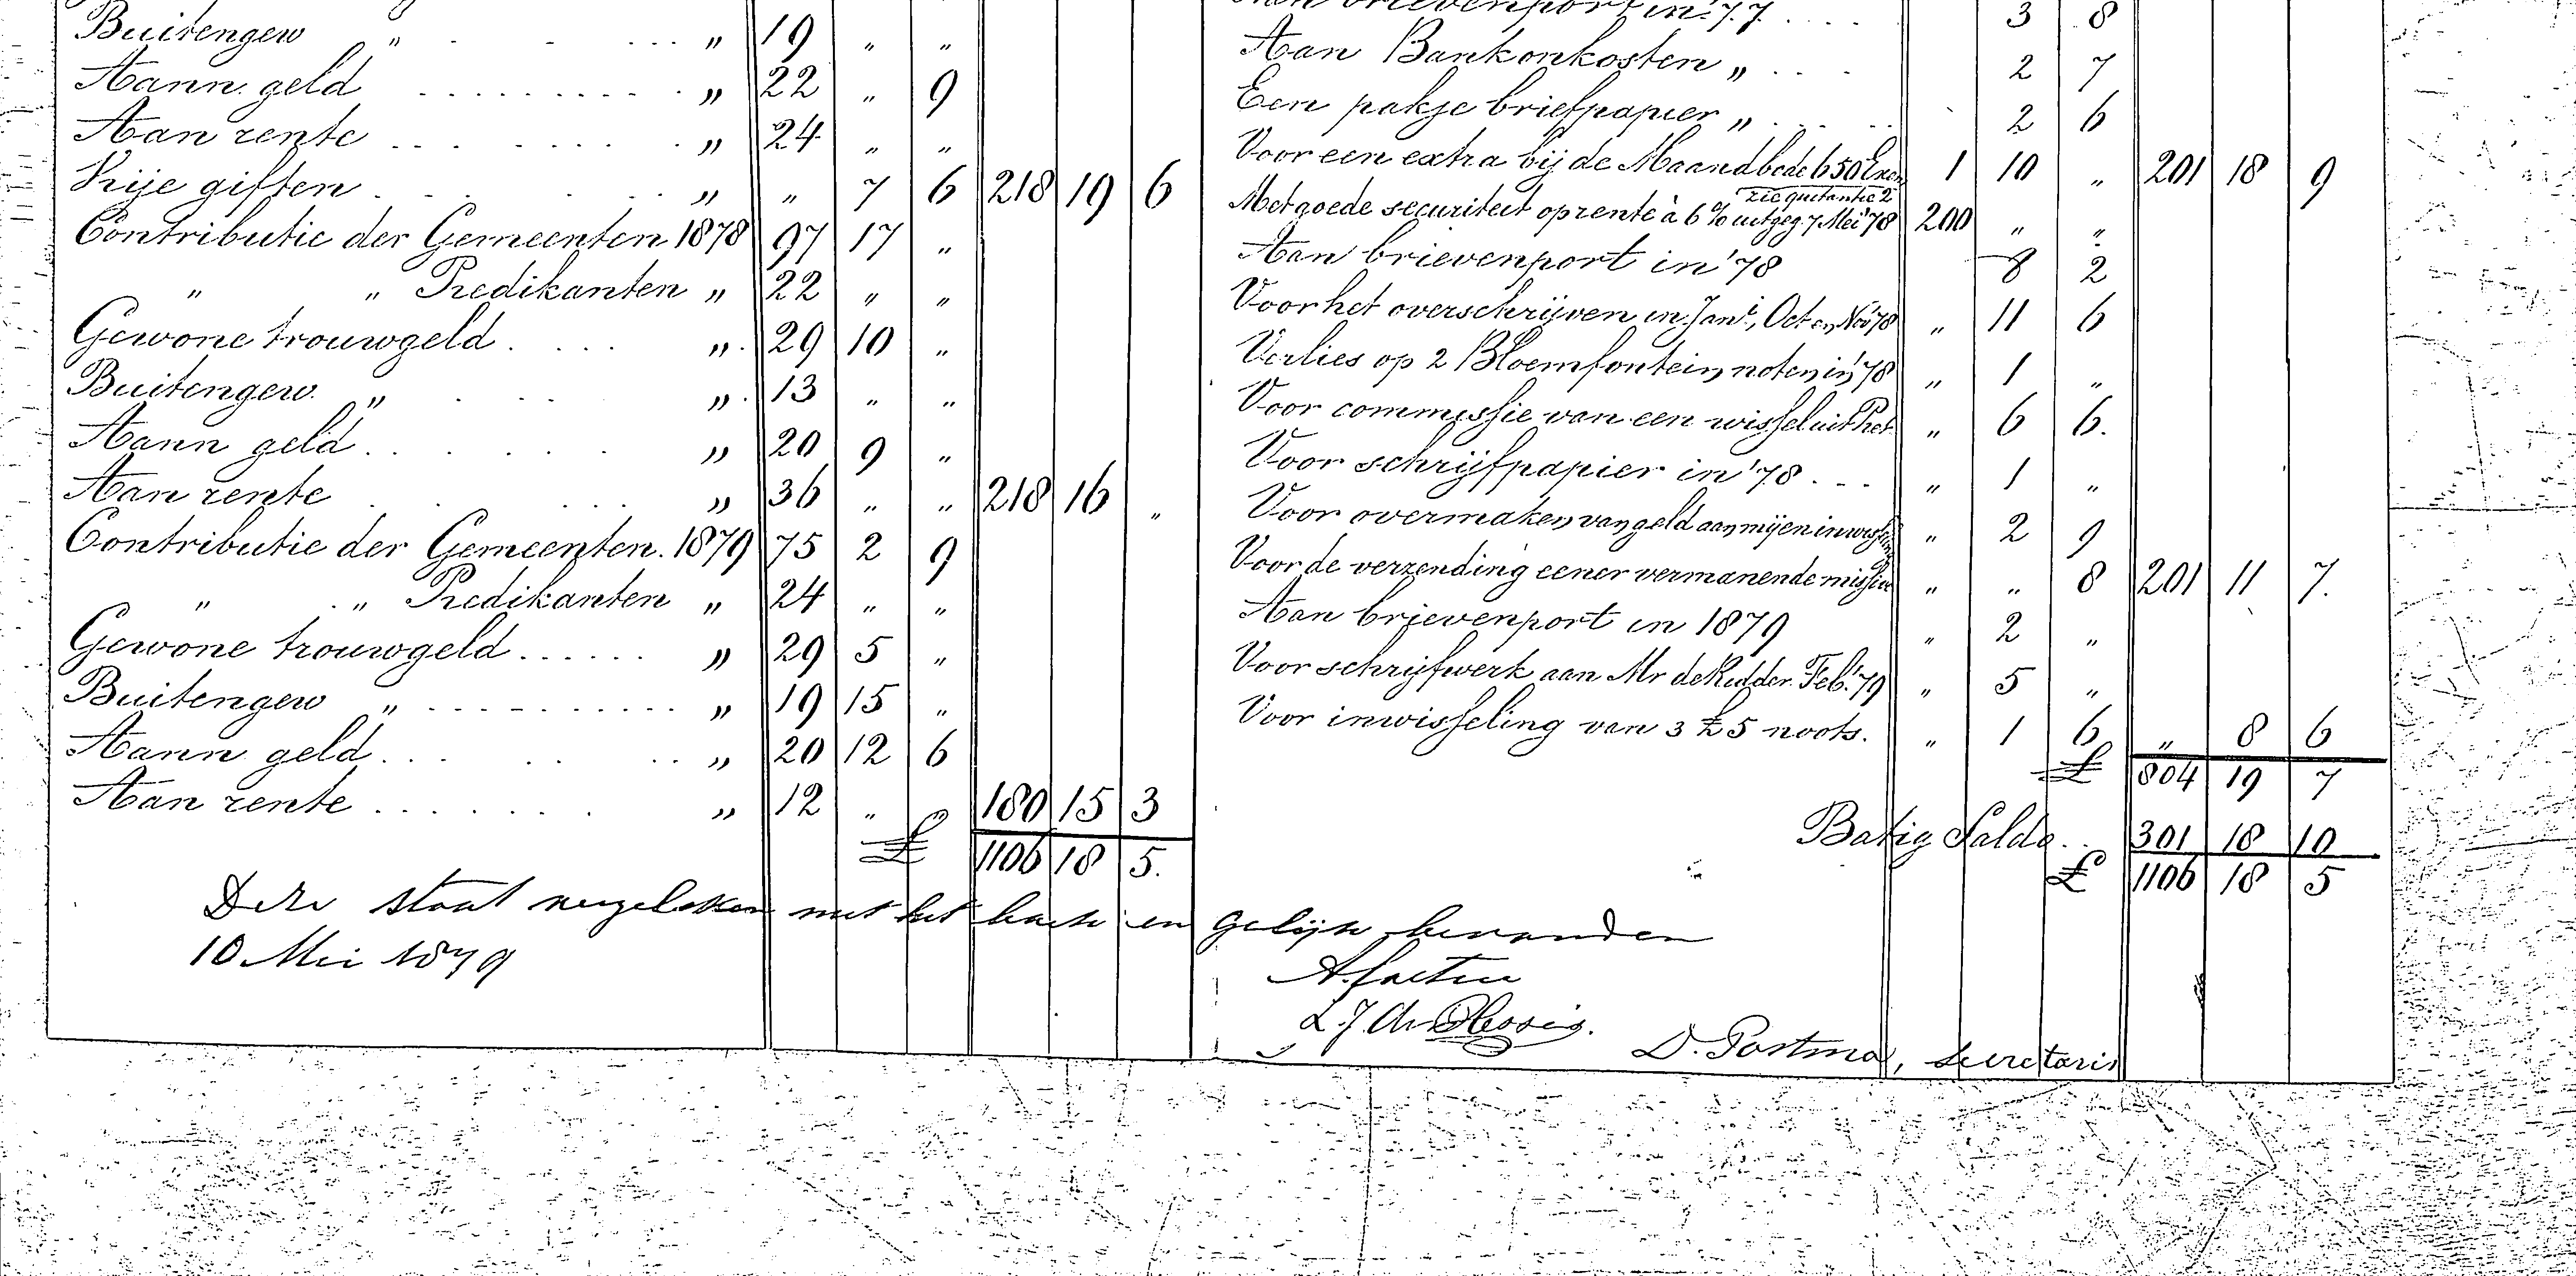 Buitengew " " 19 " "
Aann. geld " 22 " 9
Aan rente " 24 " "
Vrije giften " " 7 6 218 19 6
Contributie der Gemeenten 1878 97 17 "
" " Predikanten " 22 " "
Gewone trouwgeld " 29 10 "
Buitengew. " " 13 " "
Aann geld " 20 9 "
Aan rente " 36 " " 218 16 "
Contributie der Gemeenten. 1879 75 2 9
" " Predikanten " 24 " "
Gewone trouwgeld " 29 5 "
Buitengew " " 19 15 "
Aann geld " 20 12 6
Aan rente " 12 " " 180 15 3
£ 1106 18 5.
brievenport in '77 3 8
Aan Bankonkosten " 2 7
Een pakje briefpapier " 2 6
Voor een extra bij de Maandbode 650 Exen 1 10 " 201 18 9
zie quitantie 2
Met goede securiteit op rente à 6 % uitgeg. 7 Mei '78 200 " "
Aan brievenport in '78 8 2
Voor het overschrijven in Jani, Oct en Nov '78 " 11 6
Verlies op 2 Bloemfontein noten in '78 " 1 "
Voor commissie van een wissel uit " 6 6.
Voor schrijfpapier in '78 " 1 "
Voor overmaken van geld aan mij en " 2 9
Voor de verzending eener vermanende missive " " 8 201 11 7.
Aan brievenport in 1879 " 2 "
Voor schrijfwerk aan Mr de Ridder Feb. '79 " 5 "
Voor inwisseling van 3 £ 5 noots. " 1 6 " 8 6
£ 804 19 7
Batig Saldo 301 18 10
£ 1106 18 5
Deze staat vergeleken met het boek en gelijk bevonden
10 Mei 1879
L. J. du Plessis.
D. Postma, secretaris